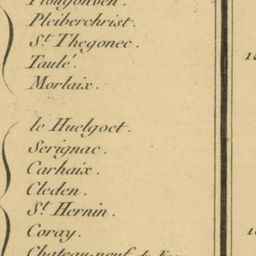 Pleiberchrist.
St Thegonec.
Taulé.
Morlaix.
le Huelgoet.
Serignac.
Carhaix.
Cleden.
St Hernin.
Coray.